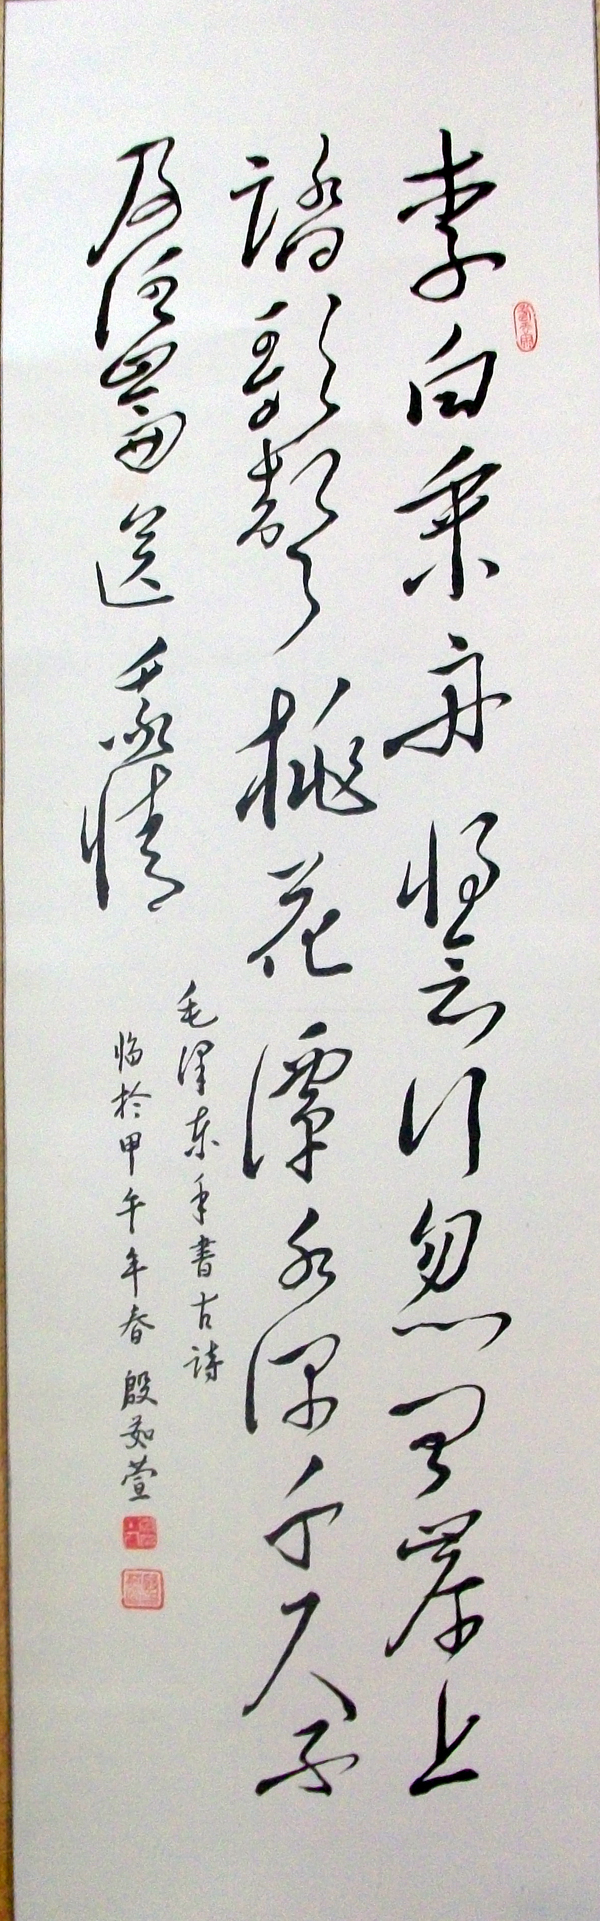 李白乘舟将行忽闻岸上
踏歌聲桃花潭水深千尺不
及汪倫送我情
毛澤东手書古詩
临於甲午年春殷茹萱